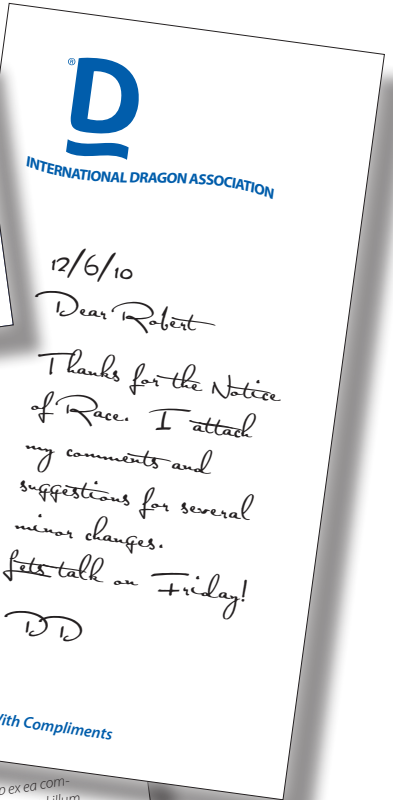 ® D
INTERNATIONAL DRAGON ASSOCIATION
12/6/10
Dear Robert
Thanks for the Notice
of Race. I attach
my comments and
suggestions for several
minor changes.
Lets talk on Friday!
DD
With Compliments
ex ea com-
illum